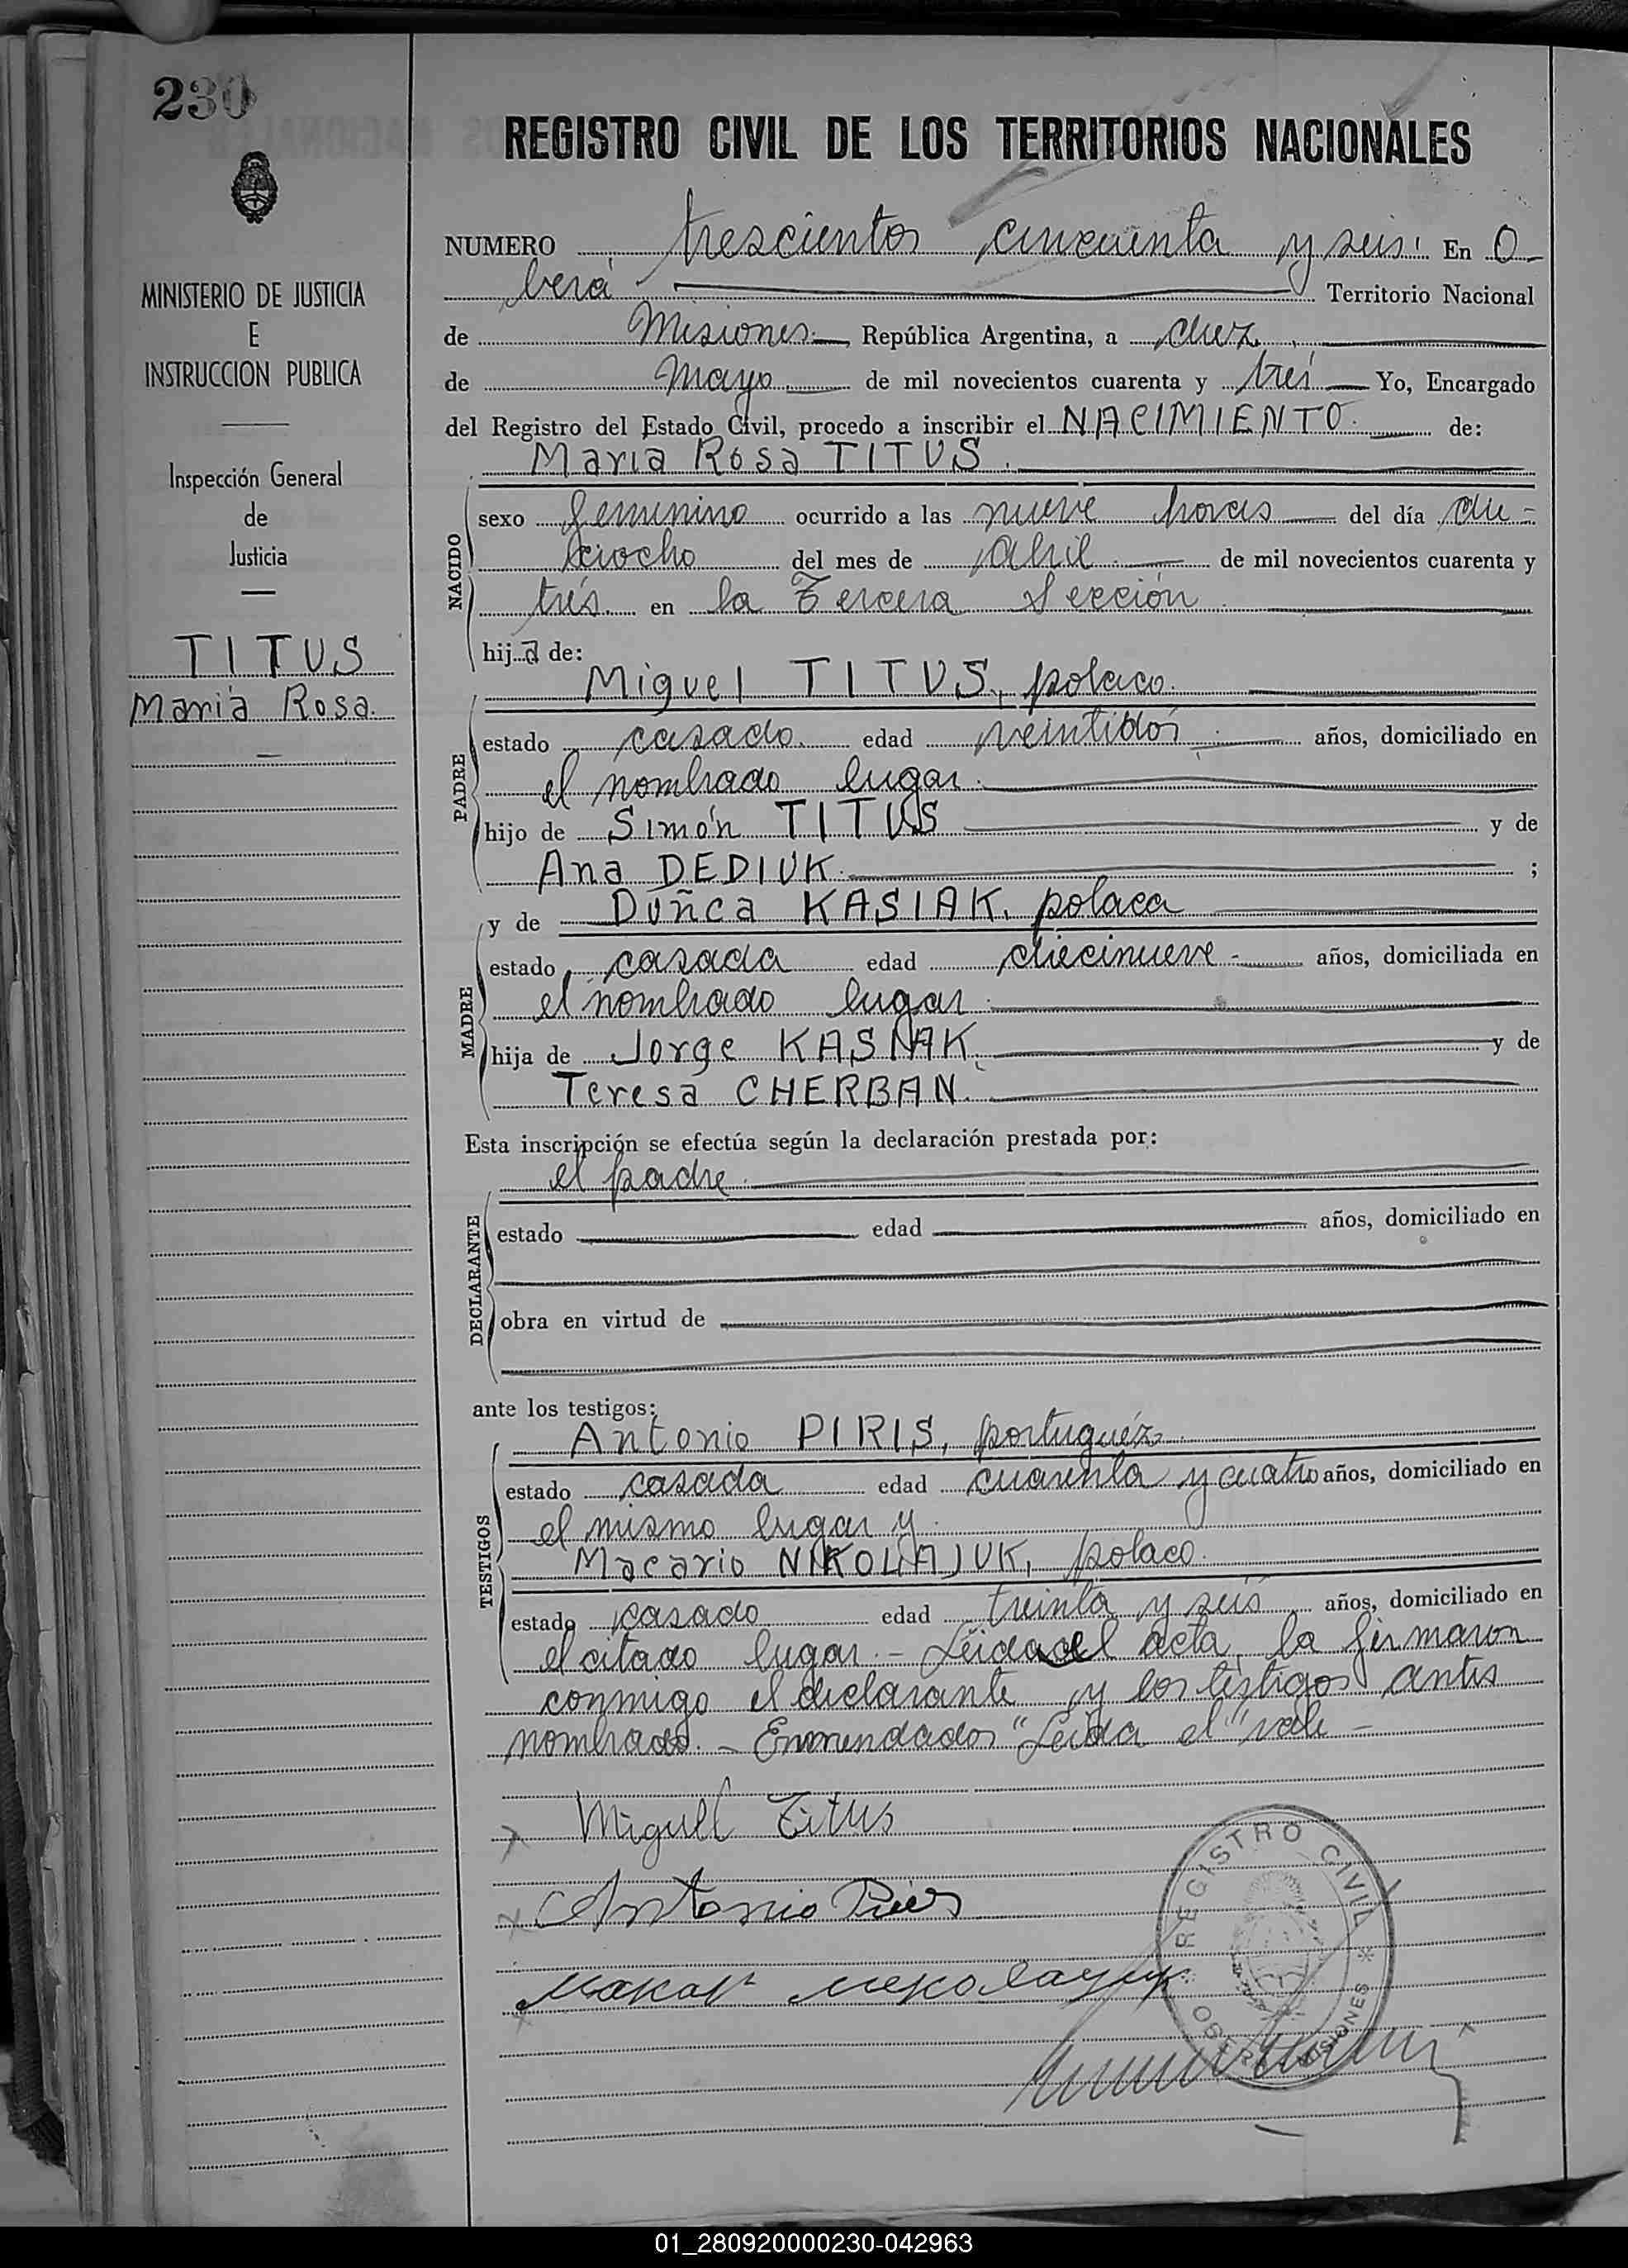 230
MINISTERIO DE JUSTICIA
E
INSTRUCCION PUBLICA
Inspección General
de
Justicia
TITUS
Maria Rosa.
REGISTRO CIVIL DE LOS TERRITORIOS NACIONALES
NUMERO trescientos cincuenta y seis. En O-
berá Territorio Nacional
de Misiones República Argentina, a diez
de Mayo de mil novecientos cuarenta y tres Yo, Encargado
del Registro del Estado Civil, procedo a inscribir el NACIMIENTO. de:
Maria Rosa TITUS.
NACIDO
sexo femenino ocurrido a las nueve horas del día die-
ciocho del mes de Abril de mil novecientos cuarenta y
trés. en la Tercera Sección
hija de:
Miguel TITUS, polaco.
PADRE
estado casado. edad veintidós años, domiciliado en
el nombrado lugar.
hijo de Simón TITUS y de
Ana DEDIUK. ;
y de Duñca KASIAK, polaca
MADRE
estado casada edad diecinueve - años, domiciliada en
el nombrado lugar.
hija de Jorge KASIAK. y de
Teresa CHERBAN.
Esta inscripción se efectúa según la declaración prestada por:
el padre
DECLARANTE
estado edad años, domiciliado en
obra en virtud de
ante los testigos:
Antonio PIRIS, portuguéz
TESTIGOS
estado casada edad cuarenta y cuatro años, domiciliado en
el mismo lugar y
Macario NIKOLAJUK, polaco.
estado casado edad treinta y seis años, domiciliado en
el citado lugar.- Leida el acta, la firmaron
conmigo el declarante y los testigos antes
nombrados. - Enmendados "Leida el" vale -
Miguel Titus
Antonio Piris
REGISTRO CIVIL
OBERA MISIONES
01_280920000230-042963